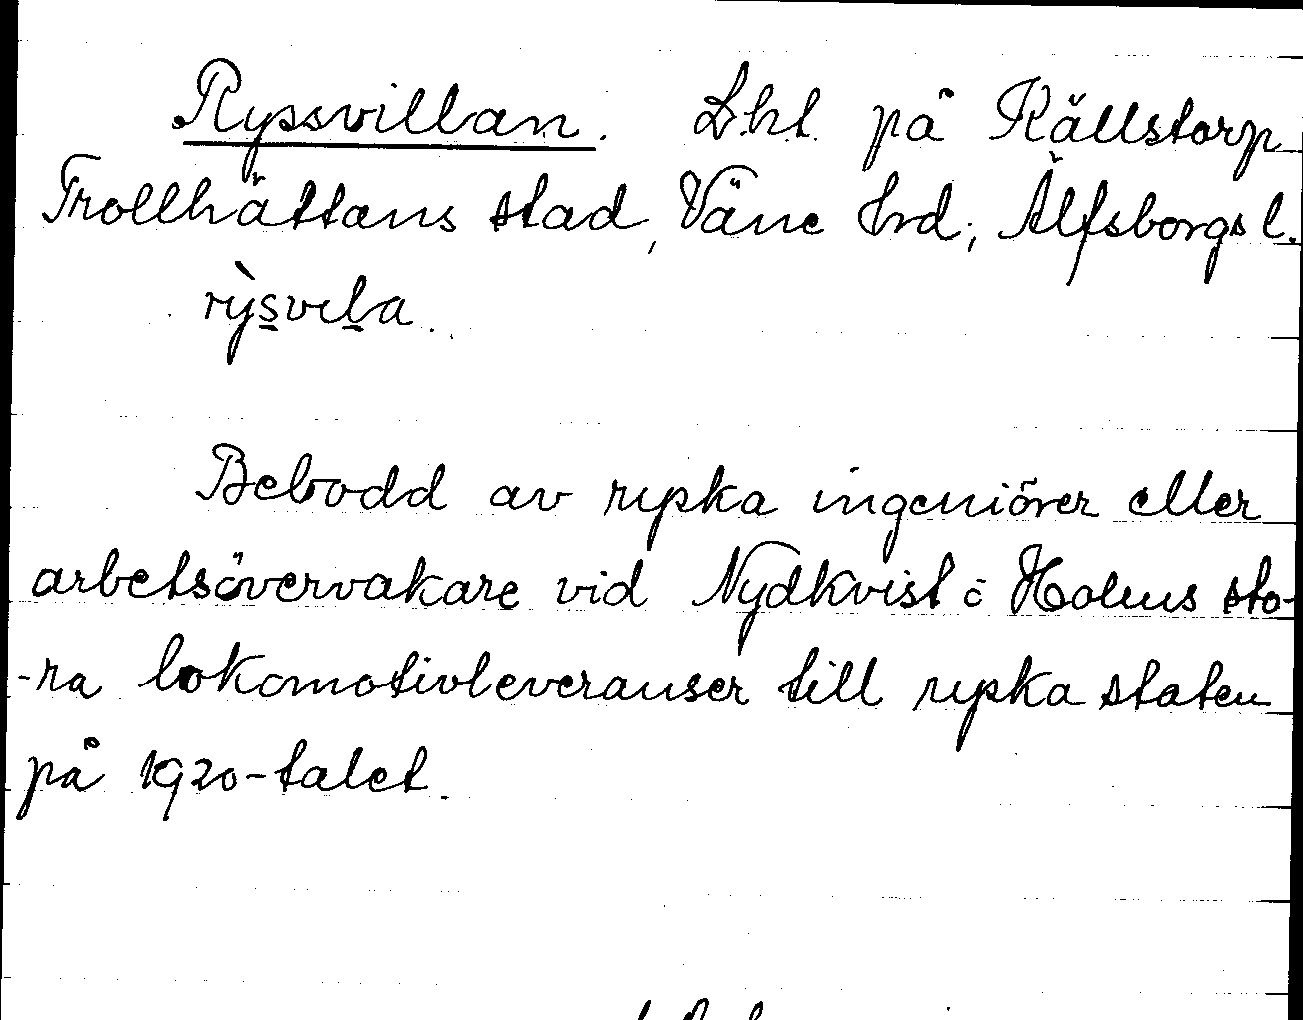 Ryssvillan. Lht på Källstorp
Trollhättans stad, Väne hrd; Älfsborgs l.
rỳsvila.
Bebodd av ryska ingeniörer eller
arbetsövervakare vid Nydkvist o Holms sto-
-ra lokomotivleveranser till ryska staten
på 1920-talet.